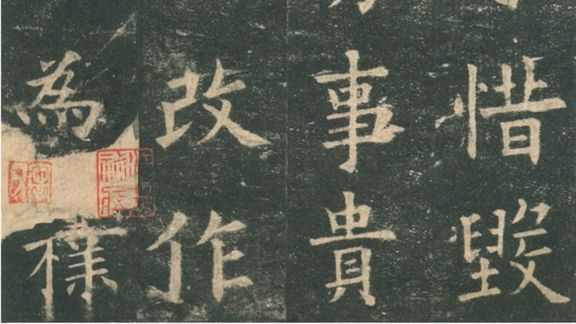 惜毀
事貴
改作
為樸